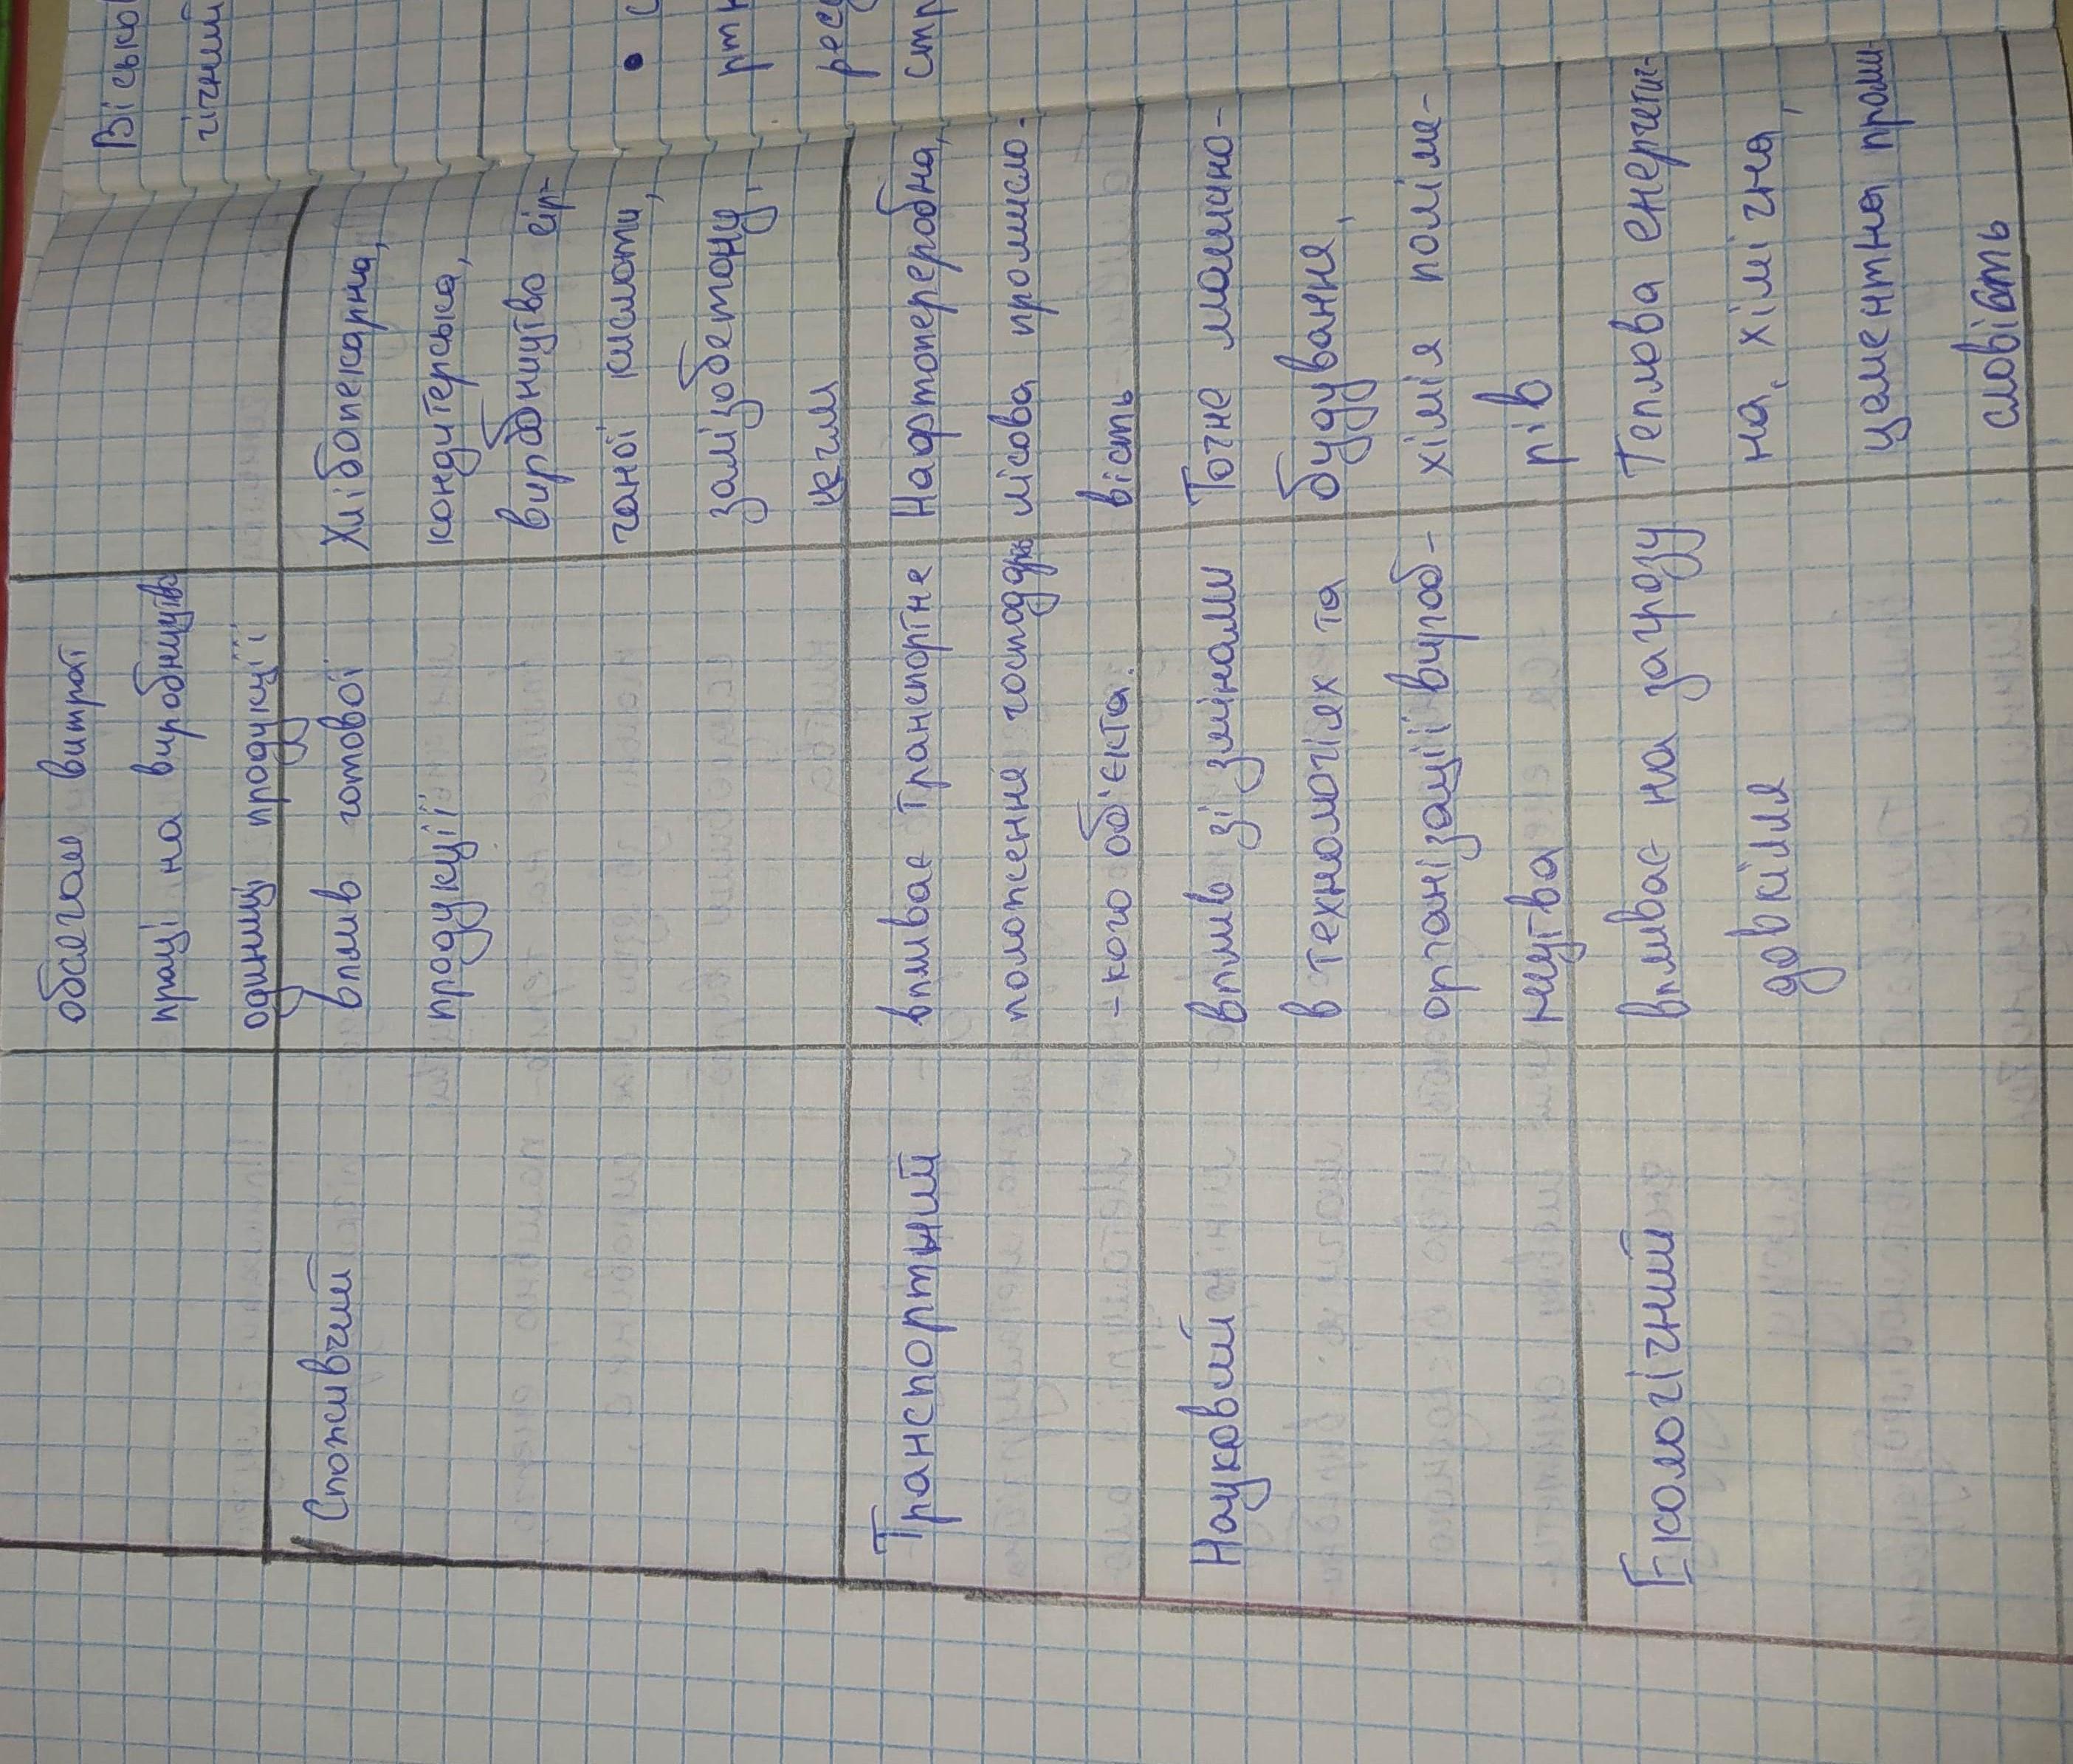 обсягом витрат
праці на виробництво
одиниці продукції
Споживчий
вплив готової
продукції
Хлібопекарна,
кондитерська,
вирбоництво сір-
чаної кислоти,
залізобетону,
цегли
Транспортний
впливає транспортне
положення господарсь
-кого об'єкта.
Нафтопереробна,
лісова промисло-
вість
Науковий
вплив зі змінами
в технологіях та
організації вироб-
ництва
Точне машино-
будування,
хімія поліме-
рів
Екологічний
впливає на загрозу
довкілля
Теплова енергети-
на, хімічна,
цементна проми-
словість
Військо
гічний
• с
ртн
ресу
стр